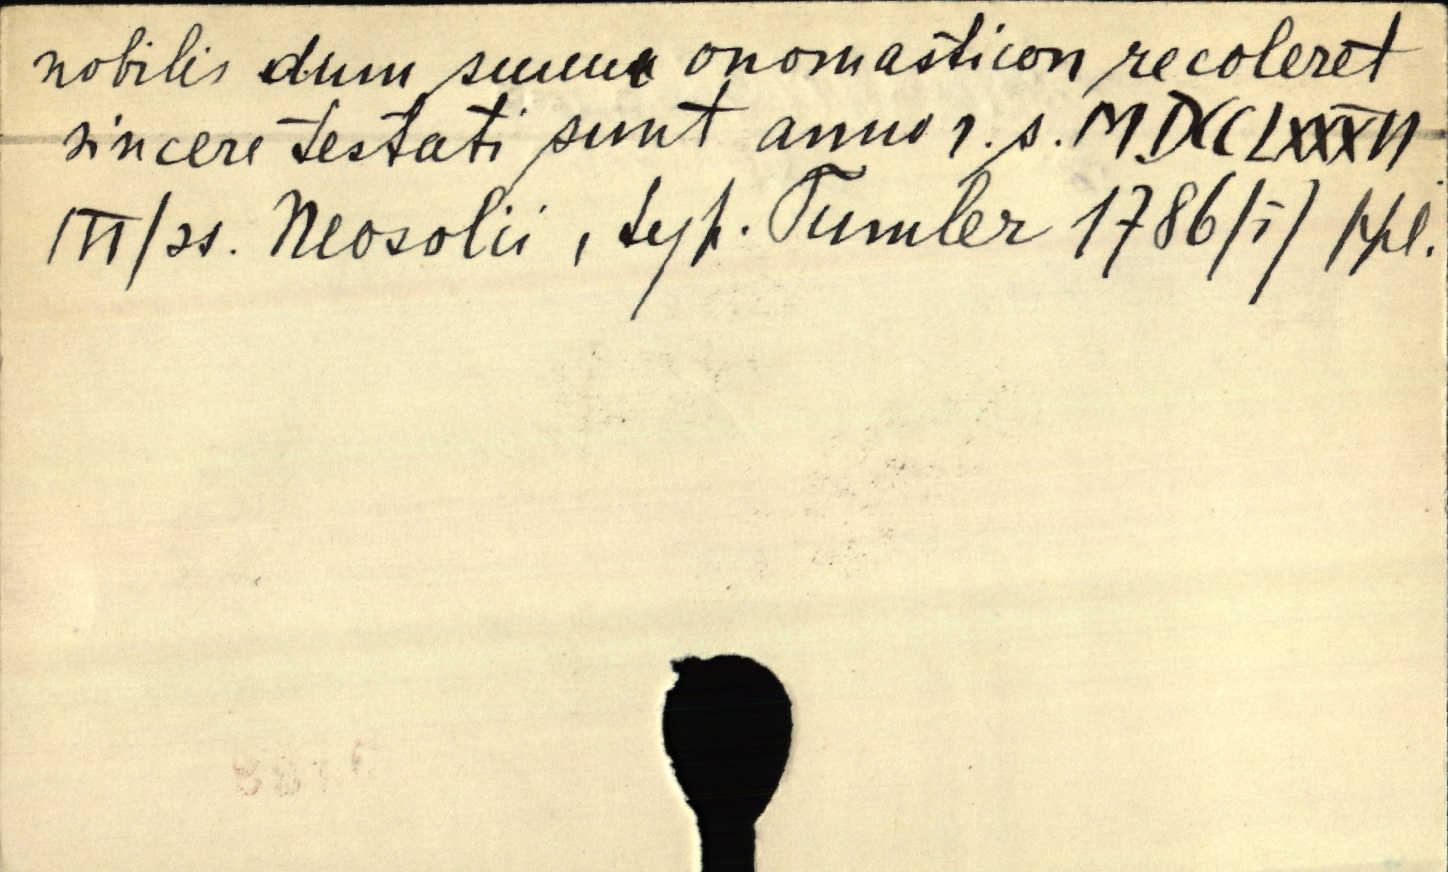 nobilis dum suum onomasticon recoleret
sincere testati sunt anno r. s. MDCCLXXXVI
/VI/ss. Neosolii, typ. Tumler 1786/1/ ppl.